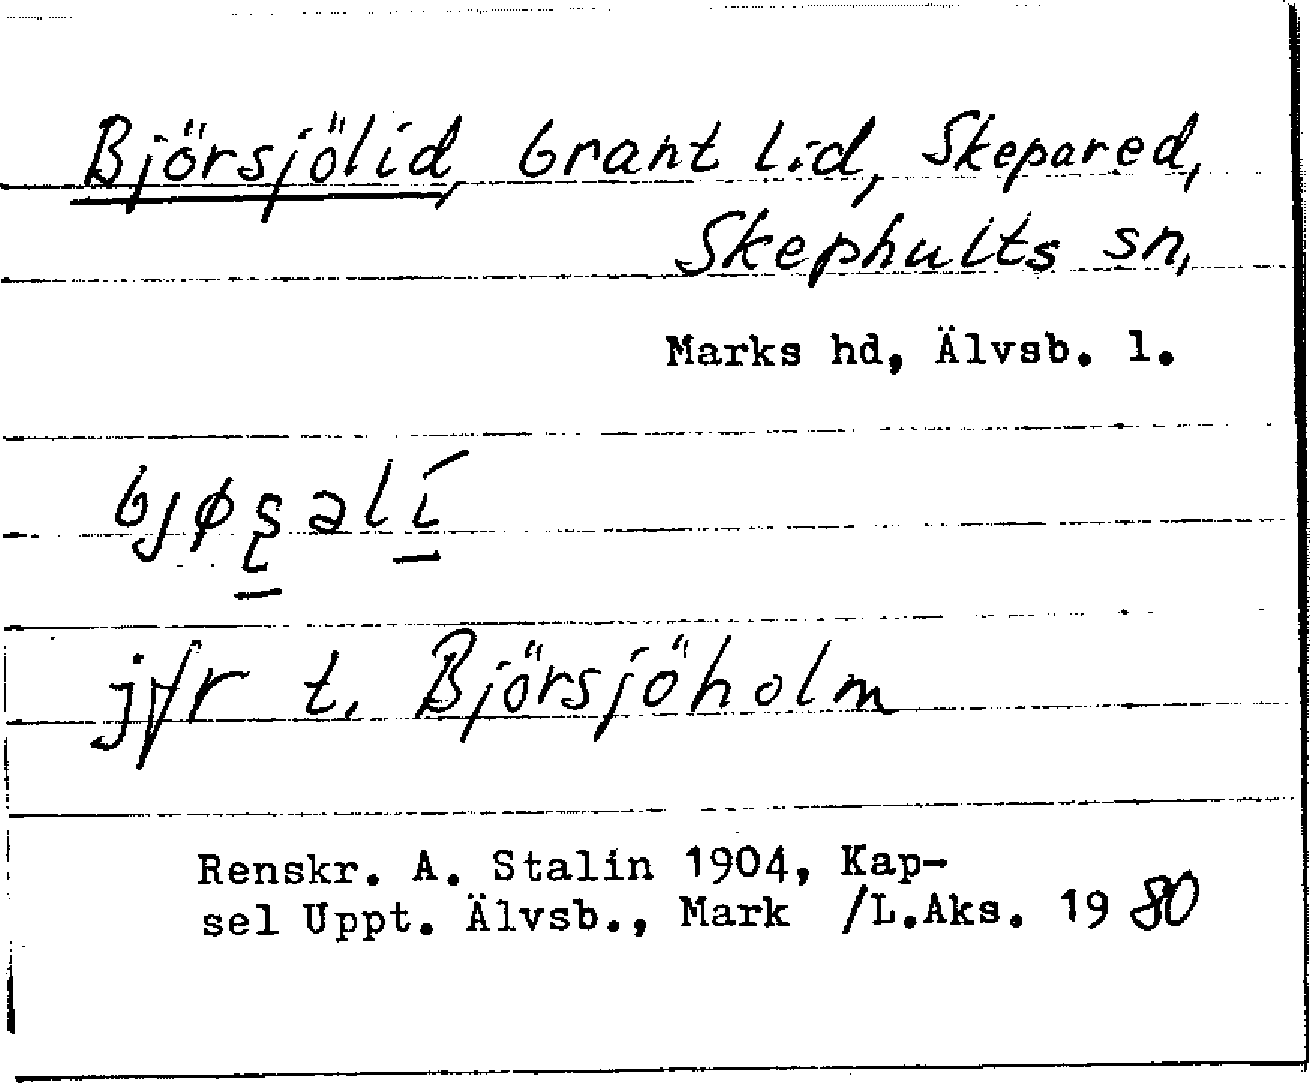 Björsjölid, brant lid, Skepared,
Skephults sn,
Marks hd, Älvsb. l.
bjøʂəlí
jfr t. Björsjöholm
Renskr. A. Stalin 1904, Kap-
sel Uppt. Älvsb., Mark /L.Aks. 1980